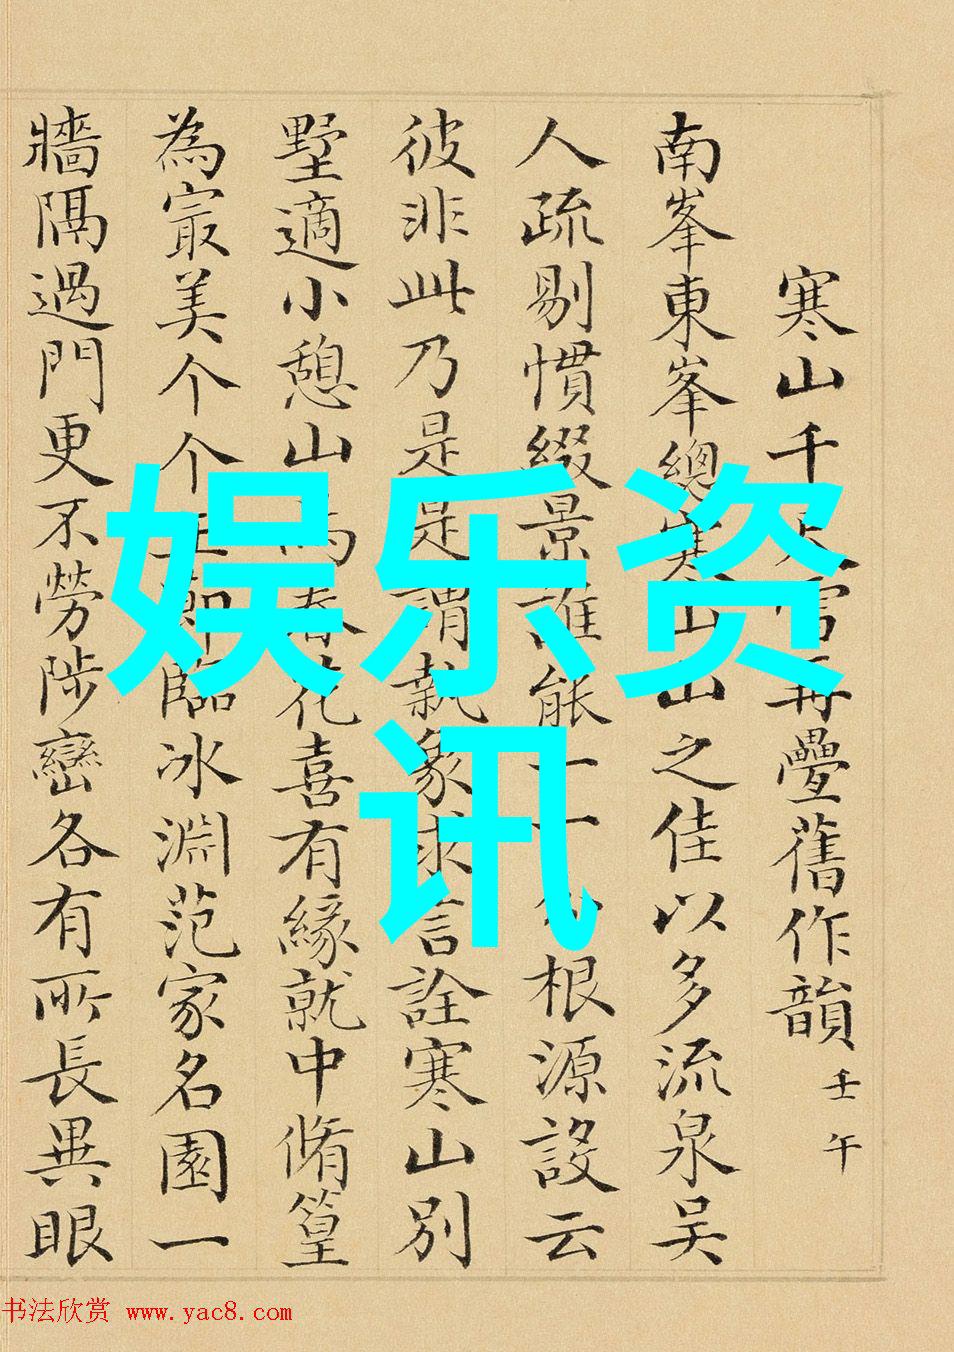 寒山千尺雪再疊舊作韻 壬午
南峯東峯總寒山山之佳以多流泉吴
人疏剔慣綴景誰能一一 根源設云
彼非此乃是是謂執象求言詮寒山別
墅適小憩山 春花喜有緣就中脩篁
為寂美个个 節臨冰淵范家名園一
牆隔過門更不勞陟巒各有所長異眼
娱乐资
讯
书法欣赏 www.yac8.com